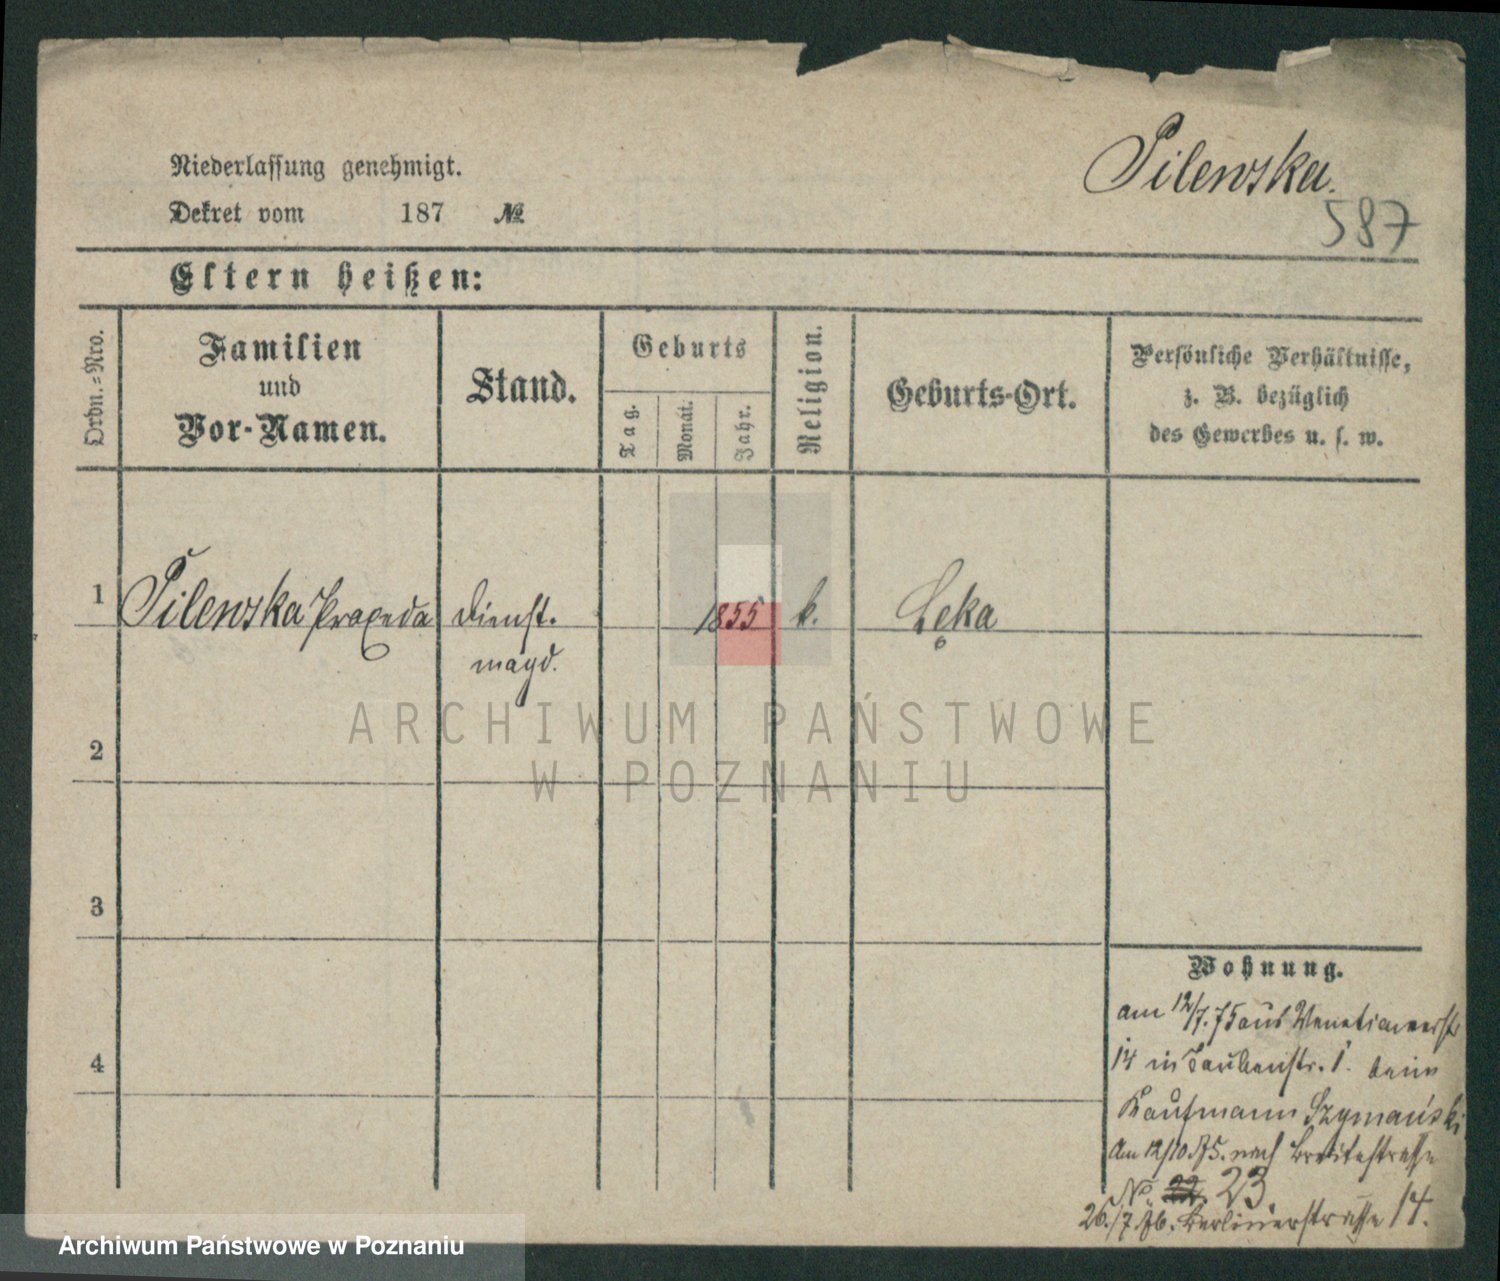 Pilewska.
587
Niederlassung genehmigt.
Dekret vom 187 №
Eltern heißen:
Ordn.=Nro.
Familien
und
Vor-Namen.
Stand.
Geburts
Tag.
Monat.
Jahr.
Religion.
Geburts-Ort.
Persönliche Verhältnisse,
z. B. bezüglich
des Gewerbes u. s. w.
1 Pilewska Praxeda Dienst- 1855 k. Łęka
magd.
ARCHIWUM PAŃSTWOWE
W POZNANIU
2
3
4
Wohnung.
am 12/7. 75 aus Venetianerstr
14 in Taubenstr. 1. beim
Kaufmann Szymański
Am 12/10 75. nach Breitestrasse
No. 22 23
26./7. 76. Berlinerstrasse 14.
Archiwum Państwowe w Poznaniu